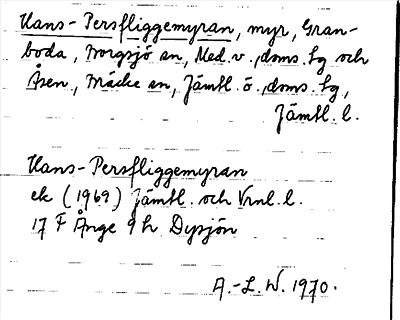 Hans-Persfliggemyran, myr, Gran-
boda, Borgsjö sn, Med.v., doms.lg och
Åsen, Bräcke sn, Jämtl.ö., doms.lg,
Jämtl.l.
Hans-Persfliggemyran
ek (1969) Jämtl. och Vrnl.l.
17 F Ånge 9 h Dysjön
A.-L. W. 1970.